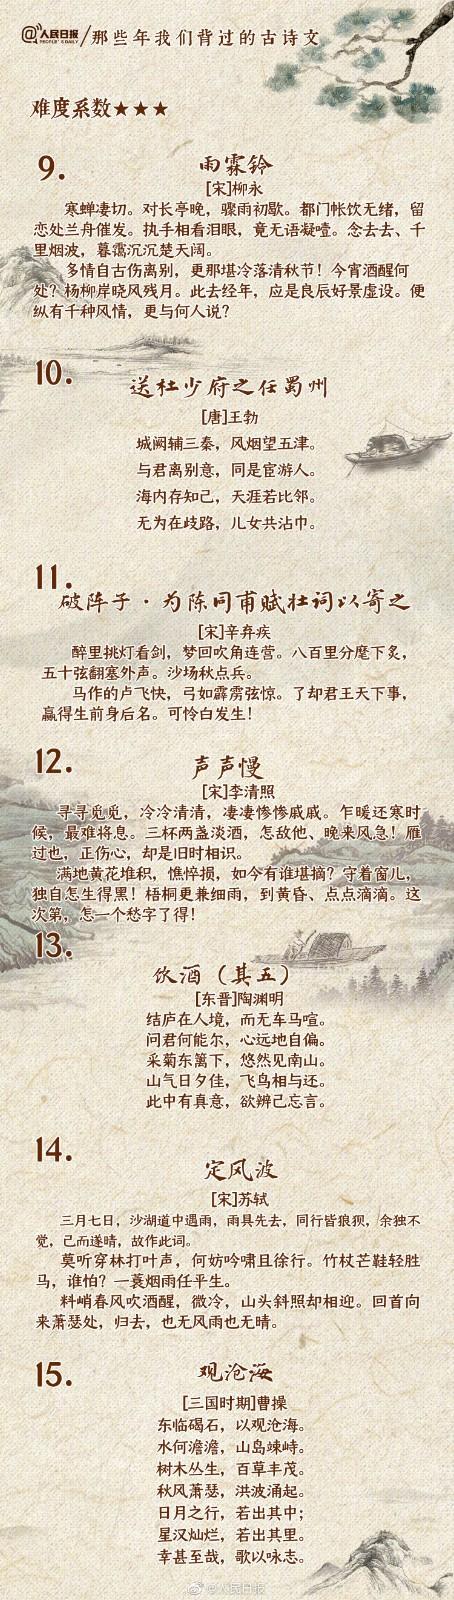 @人民日报 PEOPLE'S DAILY /那些年我们背过的古诗文
难度系数★★★
9.
雨霖铃
[宋]柳永
寒蝉凄切。对长亭晚，骤雨初歇。都门帐饮无绪，留
恋处兰舟催发。执手相看泪眼，竟无语凝噎。念去去、千
里烟波，暮霭沉沉楚天阔。
多情自古伤离别，更那堪冷落清秋节！今宵酒醒何
处？杨柳岸晓风残月。此去经年，应是良辰好景虚设。便
纵有千种风情，更与何人说？
10.
送杜少府之任蜀州
[唐]王勃
城阙辅三秦，风烟望五津。
与君离别意，同是宦游人。
海内存知己，天涯若比邻。
无为在歧路，儿女共沾巾。
11.
破阵子·为陈同甫赋壮词以寄之
[宋]辛弃疾
醉里挑灯看剑，梦回吹角连营。八百里分麾下炙，
五十弦翻塞外声。沙场秋点兵。
马作的卢飞快，弓如霹雳弦惊。了却君王天下事，
赢得生前身后名。可怜白发生！
12.
声声慢
[宋]李清照
寻寻觅觅，冷冷清清，凄凄惨惨戚戚。乍暖还寒时
候，最难将息。三杯两盏淡酒，怎敌他、晚来风急！雁
过也，正伤心，却是旧时相识。
满地黄花堆积，憔悴损，如今有谁堪摘？守着窗儿，
独自怎生得黑！梧桐更兼细雨，到黄昏、点点滴滴。这
次第，怎一个愁字了得！
13.
饮酒（其五）
[东晋]陶渊明
结庐在人境，而无车马喧。
问君何能尔，心远地自偏。
采菊东篱下，悠然见南山。
山气日夕佳，飞鸟相与还。
此中有真意，欲辨已忘言。
14.
定风波
[宋]苏轼
三月七日，沙湖道中遇雨，雨具先去，同行皆狼狈，余独不
觉，已而遂晴，故作此词。
莫听穿林打叶声，何妨吟啸且徐行。竹杖芒鞋轻胜
马，谁怕？一蓑烟雨任平生。
料峭春风吹酒醒，微冷，山头斜照却相迎。回首向
来萧瑟处，归去，也无风雨也无晴。
15.
观沧海
[三国时期]曹操
东临碣石，以观沧海。
水何澹澹，山岛竦峙。
树木丛生，百草丰茂。
秋风萧瑟，洪波涌起。
日月之行，若出其中；
星汉灿烂，若出其里。
幸甚至哉，歌以咏志。
@人民日报